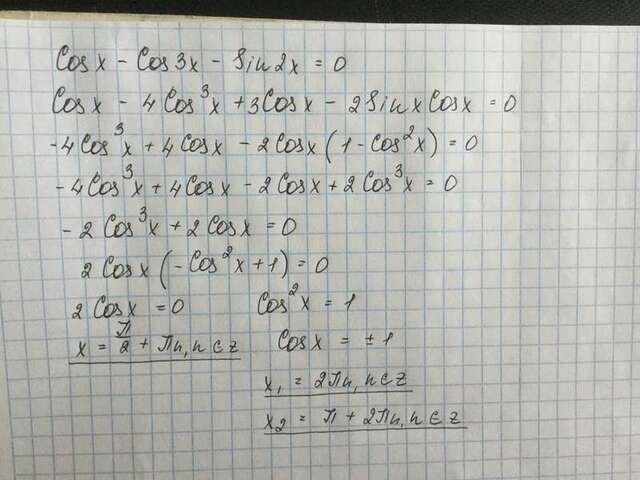 Cos x - Cos 3x - Sin 2x = 0
Cos x - 4 Cos³x + 3 Cos x - 2 Sin x Cos x = 0
-4 Cos³x + 4 Cos x - 2 Cos x (1 - Cos²x) = 0
-4 Cos³x + 4 Cos x - 2 Cos x + 2 Cos³x = 0
-2 Cos³x + 2 Cos x = 0
2 Cos x (-Cos²x + 1) = 0
2 Cos x = 0
x = П/2 + Пn, n ∈ z
Cos²x = 1
Cos x = ± 1
x₁ = 2Пn, n ∈ z
x₂ = П + 2Пn, n ∈ z